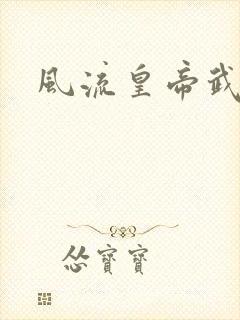 風流皇帝武
怂寶寶